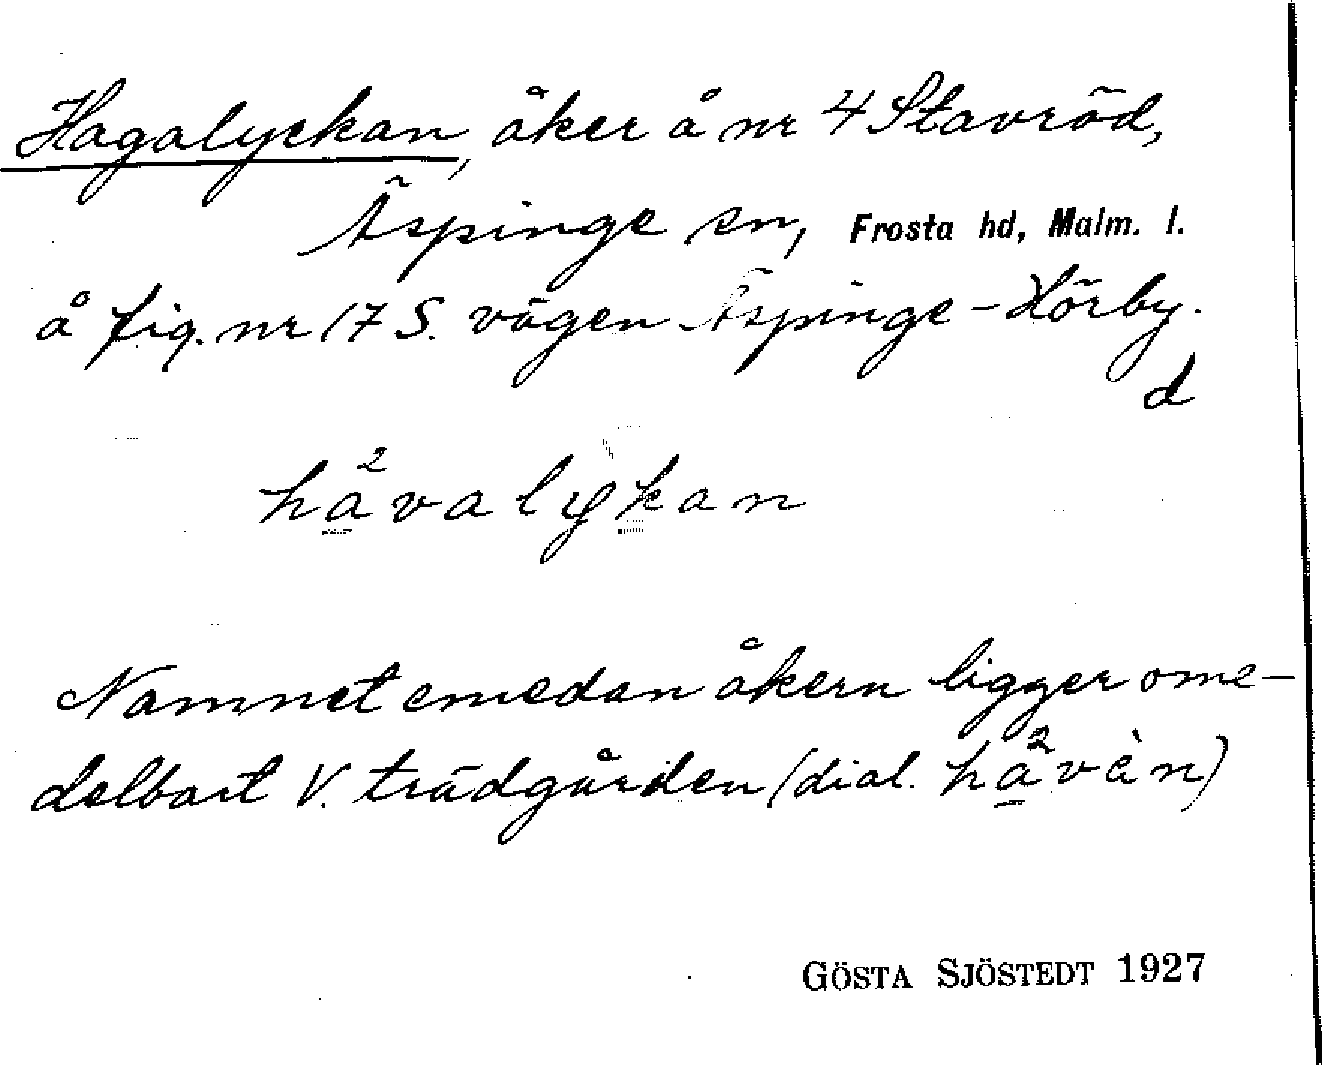 Hagalyckan, åker å nr 4 Stavröd,
Äspinge sn, Frosta hd, Malm. l.
å fig. nr 17 S. vägen Äspinge-Hörby.
d
ha²valykan
Namnet emedan åkern ligger ome-
delbart V. trädgården (dial. ha²vàn)
GÖSTA SJÖSTEDT 1927